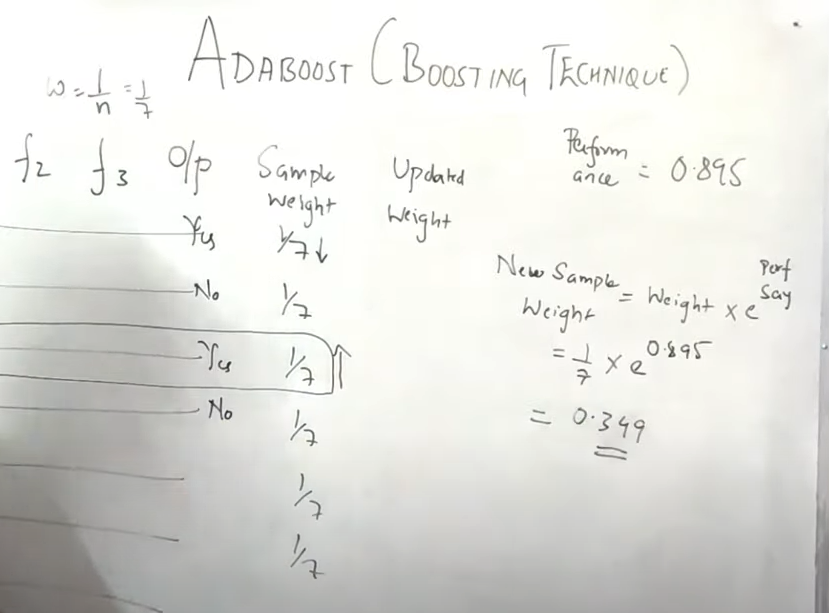 ADABOOST (BOOSTING TECHNIQUE)
w = 1/n = 1/7
f2 f3 O/p Sample Weight Updated Weight
Yes 1/7 ↓
No 1/7
Yes 1/7 ↑
No 1/7
1/7
1/7
Performance = 0.895
New Sample Weight = Weight × e^Perf Say
= 1/7 × e^0.895
= 0.349